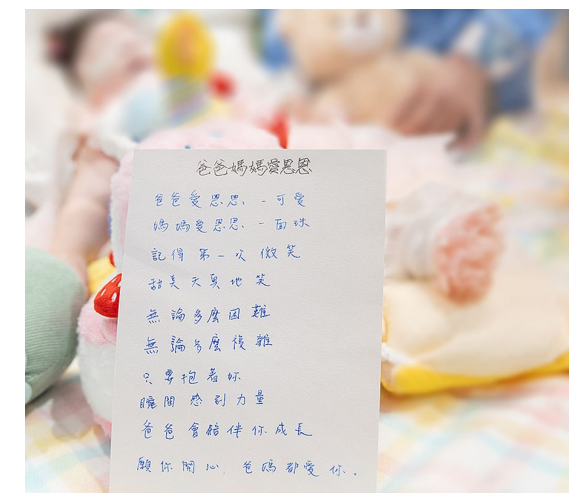 爸爸媽媽愛恩恩
爸爸愛恩恩、-可愛
媽媽愛恩恩、-面珠
記得第一次微笑
甜美天真地笑
無論多麼困難
無論多麼複雜
只要抱著妳
瞬間感到力量
爸爸會陪伴你成長
願你開心,爸媽都愛你。